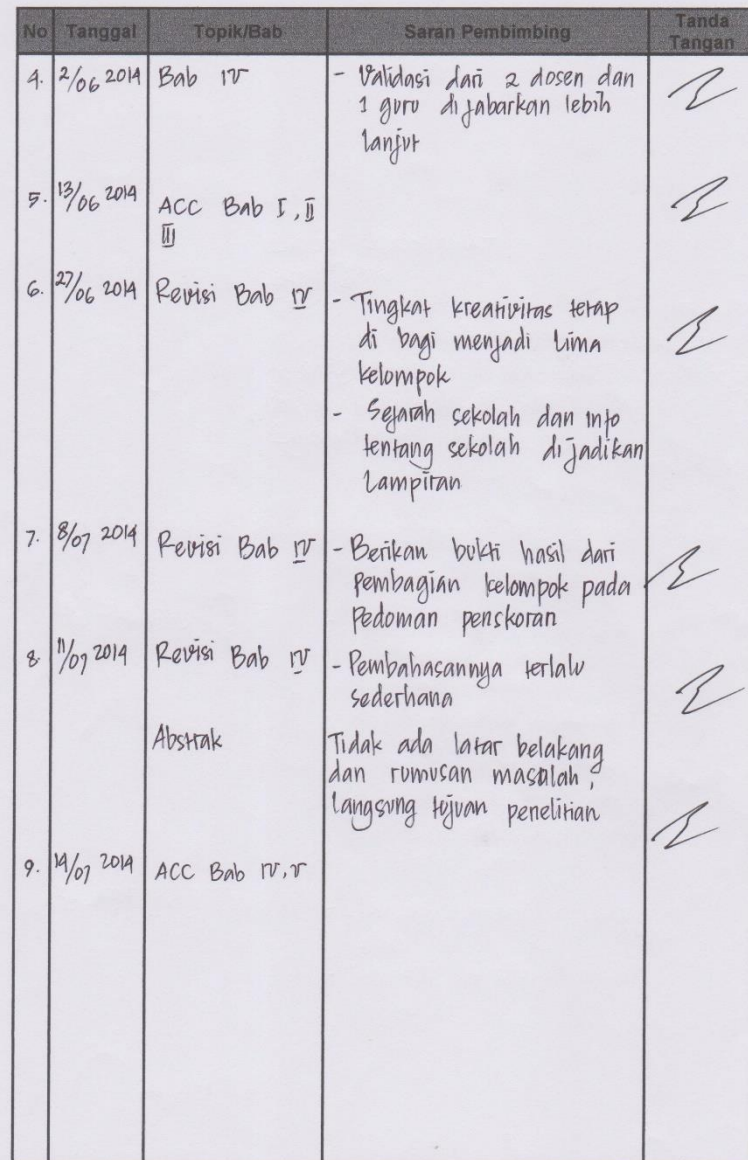 No Tanggal Topik/Bab Saran Pembimbing Tanda Tangan
4. 2/06 2014 Bab IV - Validasi dari 2 dosen dan
1 guru dijabarkan lebih
lanjut
5. 13/06 2014 ACC Bab I, II
III
6. 27/06 2014 Revisi Bab IV - Tingkat kreativitas tetap
di bagi menjadi lima
kelompok
- Sejarah sekolah dan info
tentang sekolah dijadikan
Lampiran
7. 8/07 2014 Revisi Bab IV - Berikan bukti hasil dari
Pembagian kelompok pada
Pedoman penskoran
8. 11/07 2014 Revisi Bab IV - Pembahasannya terlalu
sederhana
Abstrak Tidak ada latar belakang
dan rumusan masalah,
Langsung tujuan penelitian
9. 14/07 2014 ACC Bab IV, V